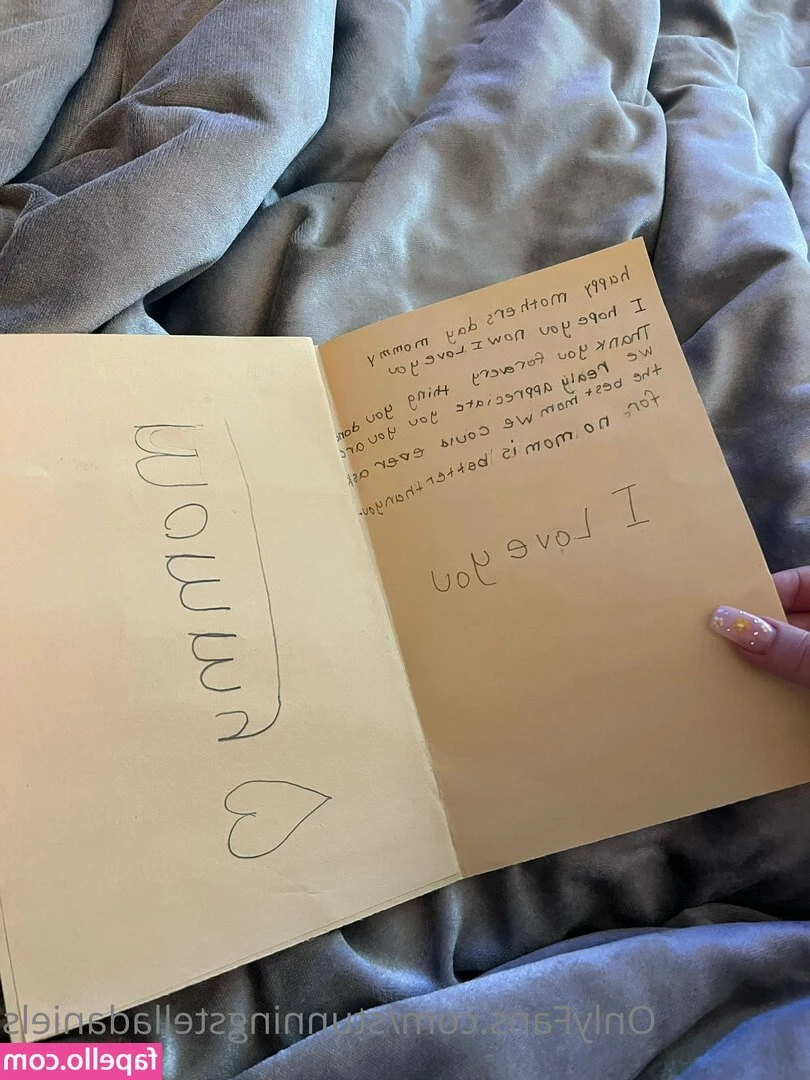 happy mothers day mommy
I hope you now I Love you
Thank you forevery thing you done
we realy appreciate you you are
the best mom we could ever ask
for no mom is better than you.
I Love you
Mommy
OnlyFans.com/stunningstelladaniels
fapello.com